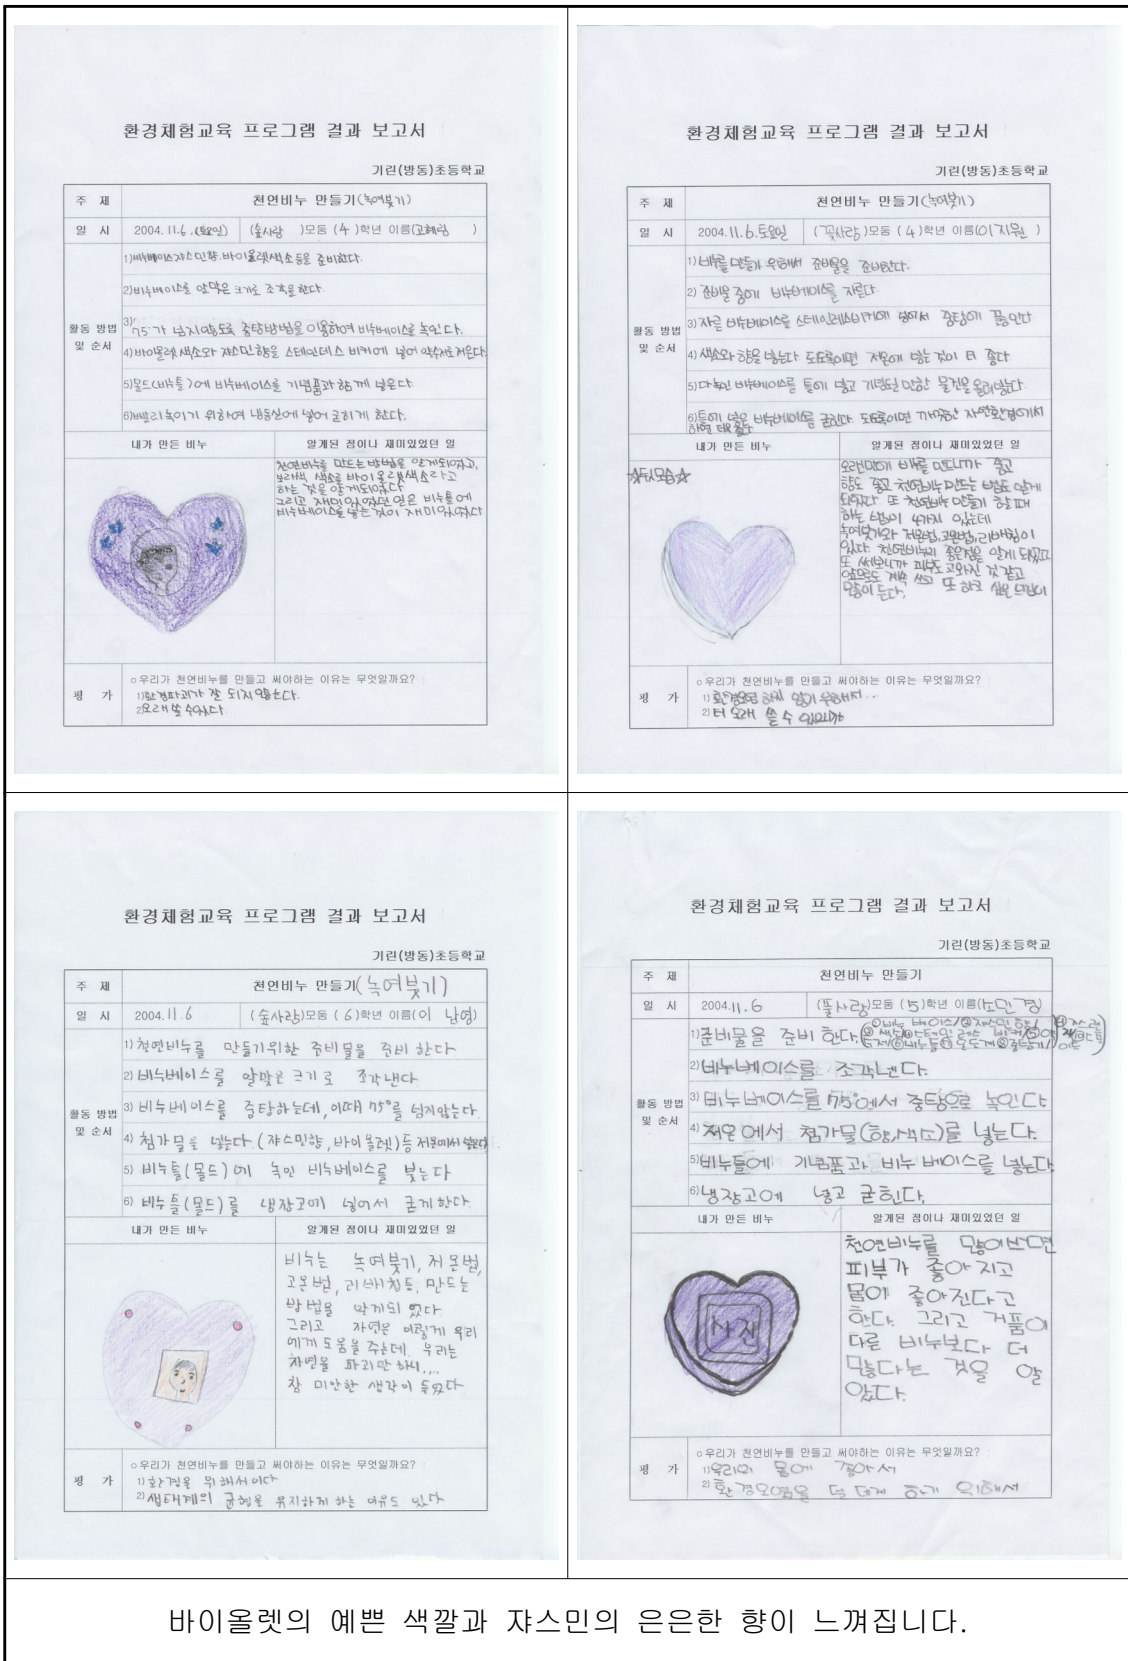 환경체험교육 프로그램 결과 보고서
기린(방동)초등학교
주 제 천연비누 만들기(녹여붓기)
일 시 2004.11.6.(토요일) (숲사랑 )모둠 (4)학년 이름(고혜림 )
활동 방법 및 순서
1)비누베이스,쟈스민향,바이올렛색소 등을 준비한다.
2)비누베이스를 알맞은 크기로 조각을 한다.
3)75°가 넘지않도록 중탕방법을 이용하여 비누베이스를 녹인다.
4)바이올렛색소와 쟈스민향을 스테인레스 비커에 넣어 약수저로 저은다.
5)몰드(비누틀)에 비누베이스를 기념품과 함께 넣은다.
6)빨리 녹이기 위하여 냉동실에 넣어 굳히게 한다.
내가 만든 비누 알게된 점이나 재미있었던 일
천연비누를 만드는 방법을 알게되었고,
보라색 색소를 바이올렛색소라고
하는 것을 알게되었다
그리고 재미있었던 일은 비누틀에
비누베이스를 넣는 것이 재미있었다
평 가
○우리가 천연비누를 만들고 써야하는 이유는 무엇일까요?
1)환경파괴가 잘 되지않는다.
2)오래 쓸 수 있다.
환경체험교육 프로그램 결과 보고서
기린(방동)초등학교
주 제 천연비누 만들기(녹여붓기)
일 시 2004.11.6.토요일 (꽃사랑)모둠 (4)학년 이름(이지원 )
활동 방법 및 순서
1)비누를 만들기 위해서 준비물을 준비한다.
2) 준비물 중에 비누베이스를 자른다
3)자른 비누베이스를 스테인레스비커에 넣어서 중탕에 끓인다
4)색소와 향을 넣는다 도도록이면 저온에 넣는 것이 더 좋다
5)다녹인 비누베이스를 틀에 넣고 기념될 만한 물건을 올려넣는다.
6)틀에 넣은 비누베이스를 굳힌다. 도도록이면 깨끗한 자연환경에서
하면 더욱 좋다
내가 만든 비누 알게된 점이나 재미있었던 일
☆뒤모습☆
오랜만에 비누를 만드니까 좋고
향도 좋고 천연비누 만드는 방법도 알게
되었다 또 천연비누 만들기 할 때
하는 방법이 4가지 있는데
녹여붓기와 저온법,고온법,리배칭이
있다 천연비누의 좋은점을 알게 되었고
또 써보니까 피부도 고와진 것 같고
앞으로도 계속 쓰고 또 하고 싶은 느낌이
많이 든다.
평 가
○우리가 천연비누를 만들고 써야하는 이유는 무엇일까요?
1)환경오염 하지 않기 위해서...
2)더 오래 쓸 수 있으니까
환경체험교육 프로그램 결과 보고서
기린(방동)초등학교
주 제 천연비누 만들기(녹여붓기)
일 시 2004.11.6 (숲사랑)모둠 (6)학년 이름(이 남영)
활동 방법 및 순서
1)천연비누를 만들기위한 준비물을 준비 한다
2)비누베이스를 알맞은 크기로 조각낸다.
3)비누베이스를 중탕하는데, 이때 75°를 넘지않는다.
4)첨가물을 넣는다 (쟈스민향, 바이올렛)등 저온에서 넣는다
5)비누틀(몰드)에 녹인 비누베이스를 붓는다
6)비누틀(몰드)를 냉장고에 넣어서 굳게한다.
내가 만든 비누 알게된 점이나 재미있었던 일
비누는 녹여붓기, 저온법,
고온법, 리배칭등, 만드는
방법을 알게되었다
그리고 자연은 이렇게 우리
에게 도움을 주는데 우리는
자연을 파괴만 하니....
참 미안한 생각이 들었다
평 가
○우리가 천연비누를 만들고 써야하는 이유는 무엇일까요?
1)환경을 위해서 이다
2)생태계의 균형을 유지하게 하는 이유도 있다
환경체험교육 프로그램 결과 보고서
기린(방동)초등학교
주 제 천연비누 만들기
일 시 2004.11.6 (풀사랑)모둠 (5)학년 이름(소민경)
활동 방법 및 순서
1)준비물을 준비 한다.(①비누 베이스/②쟈스민 향/
③색소④스테인레스 비커/⑤약
⑥비누틀⑦온도계⑧중탕기
2)비누베이스를 조각낸다.
3)비누베이스를 75°에서 중탕으로 녹인다
4)저온에서 첨가물(향,색소)를 넣는다.
5)비누틀에 기념품과 비누 베이스를 넣는다
6)냉장고에 넣고 굳힌다.
내가 만든 비누 알게된 점이나 재미있었던 일
사진
천연비누를 많이쓰면
피부가 좋아지고
몸이 좋아진다고
한다. 그리고 거품이
다른 비누보다 더
많다는 것을 알
았다.
평 가
○우리가 천연비누를 만들고 써야하는 이유는 무엇일까요?
1)우리의 몸에 좋아서
2)환경오염을 덜 되게 하기 위해서
바이올렛의 예쁜 색깔과 쟈스민의 은은한 향이 느껴집니다.